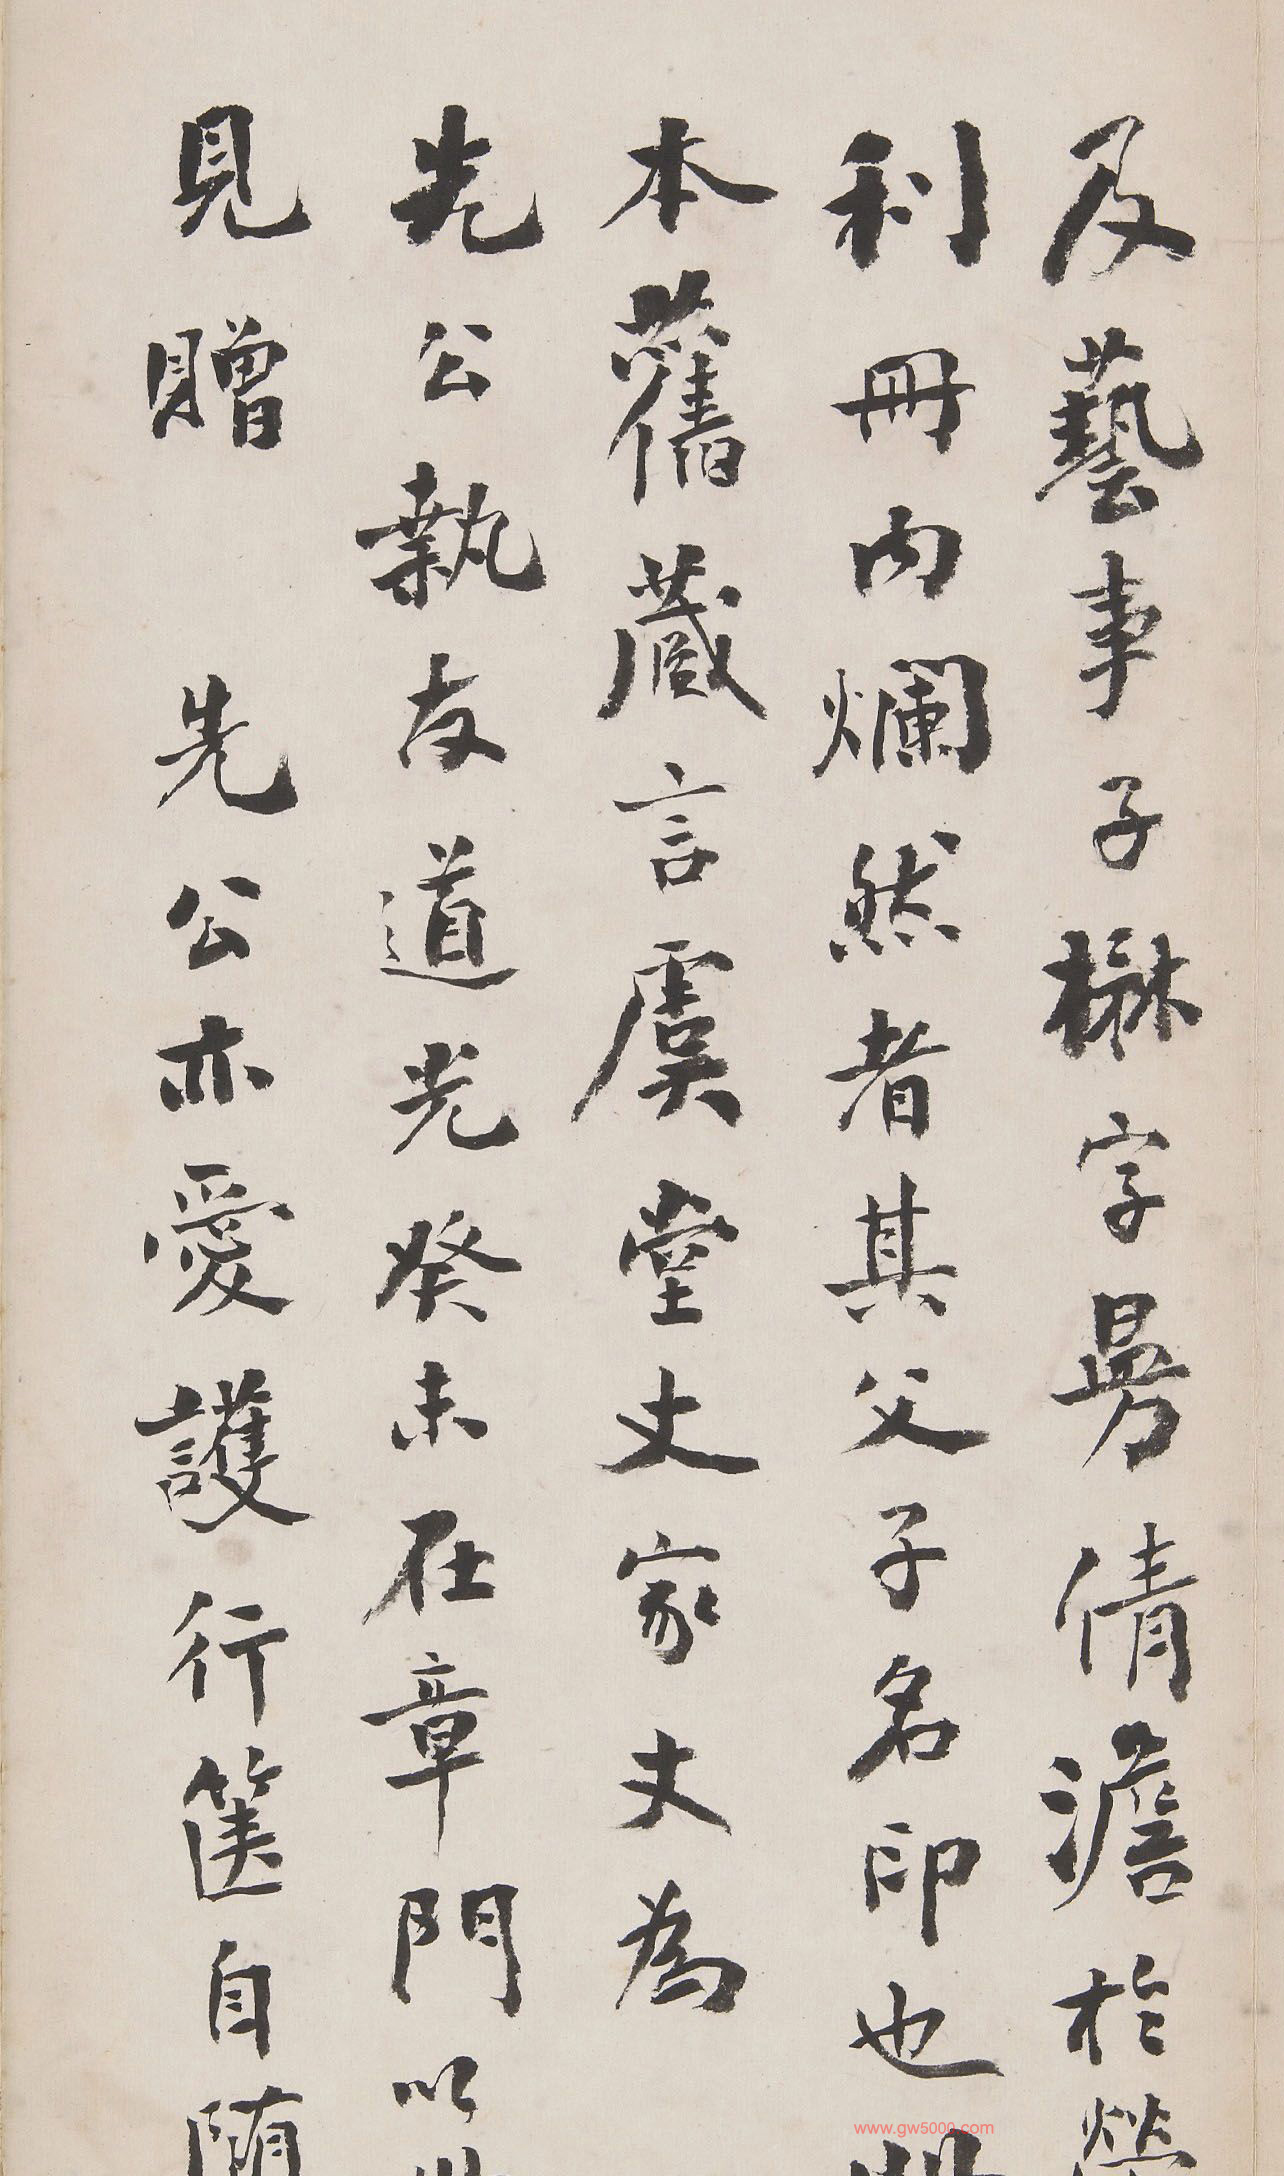 及藝事子楙字昜倩澹於榮
利冊内爛然者其父子名印也冊
本舊藏言虞堂丈家丈為
先公執友道光癸未在章門以
見贈 先公亦愛護行篋自随
www.gw5000.com